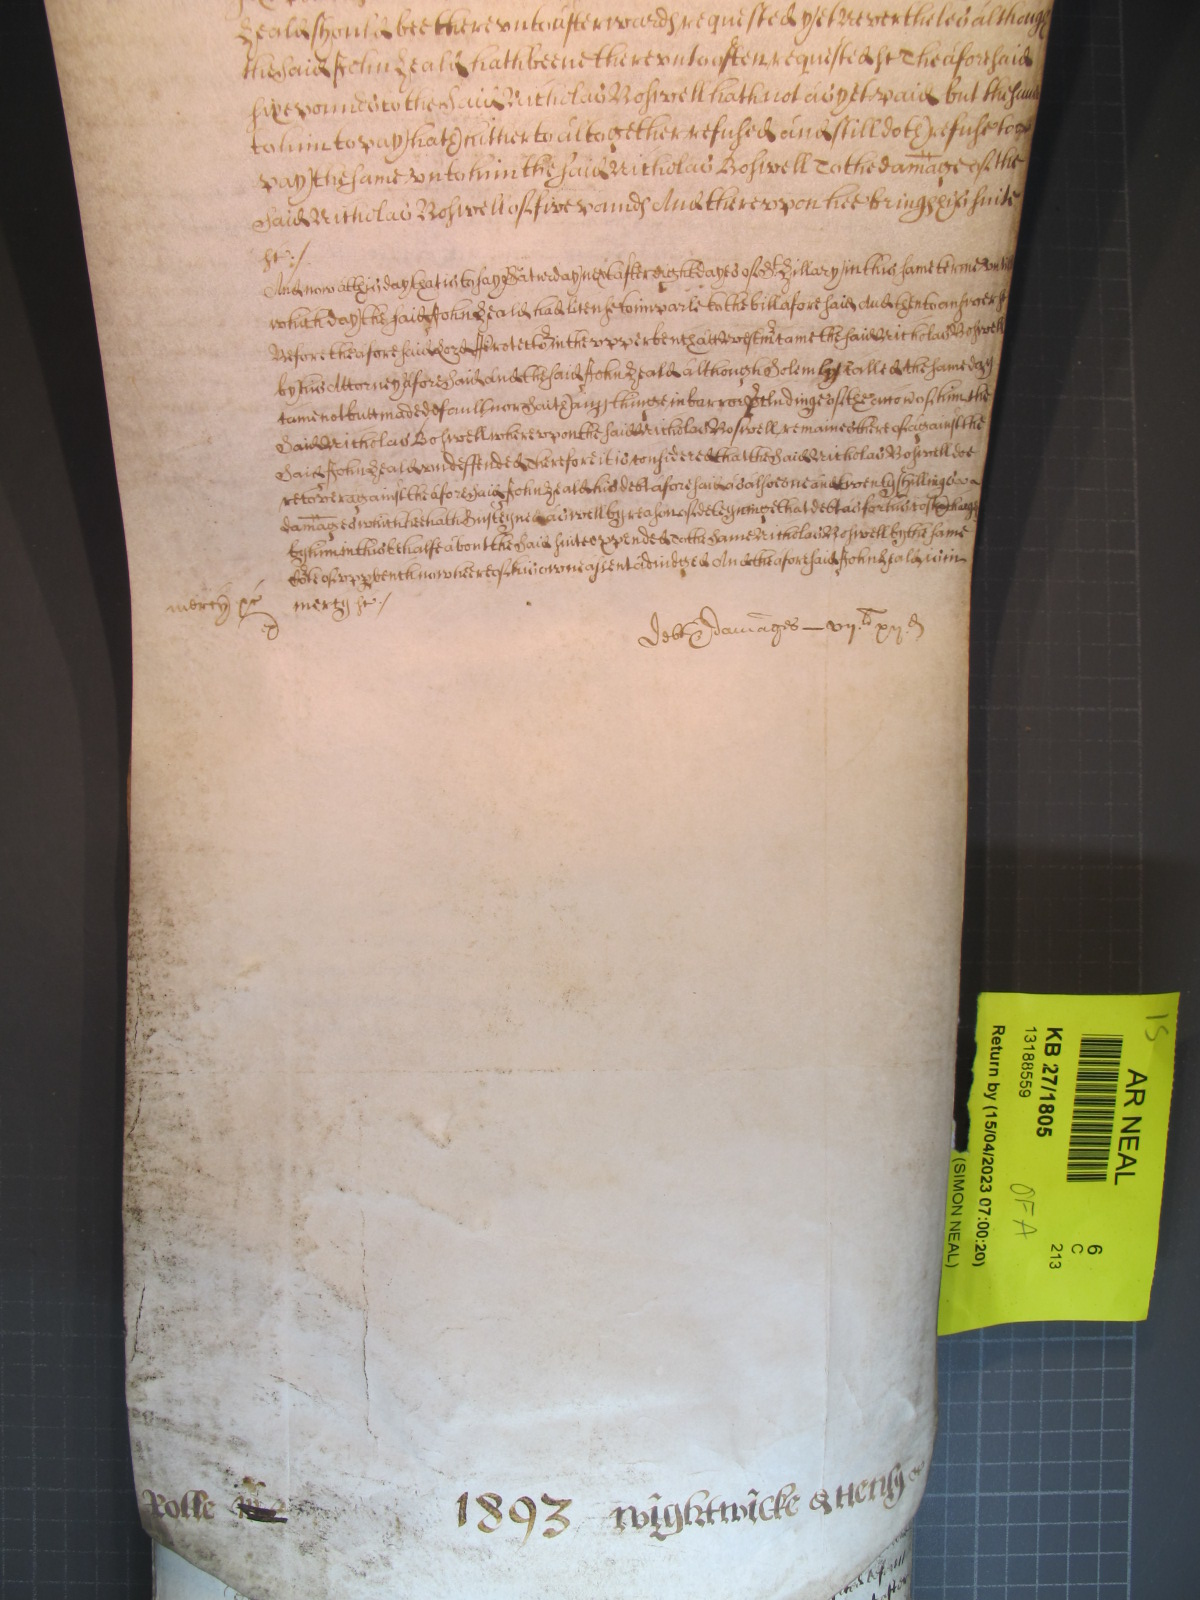 Zeald should bee thereunto afterwards requested yet Neverthelesse although
the said John Zeald hath beene thereunto often requested &c The aforesaid
five pounds to the said Nicholas Boswell hath not as yet paid but the same
to him to pay hath hitherto altogether refused and still doth refuse to
pay the same unto him the said Nicholas Boswell To the damage of the
said Nicholas Boswell of five pounds And thereupon hee brings his suite
&c ./
And now att this day that is to say Saturday next after eight dayes of St Hillary in this same terme untill
which day the said John Zeald had license to imparle to the bill aforesaid And then to answer &c
Before the aforesaid Lord Protector in the upper bench att Westmr came the said Nicholas Boswell
by his Attorney aforesaid And the said John Zeald although Solemly called the same day
came not but made default nor saith any thinge in barr or precludinge of the accion of him the
said Nicholas Boswell whereupon the said Nicholas Boswell remaines thereof against the
said John Zeald undeffended Therefore it is considered that the said Nicholas Boswell doe
recover against the aforesaid John Zeald his debt aforesaid and alsoe one and twenty shillings
damages which hee hath susteyned aswell by reason of deteyninge that debt as for his costs & charges
by him in this behalfe about the said suite expended To the same Nicholas Boswell by the same
Court of upp bench now heere of his owne assent adiudged And the aforesaid John Zeald is in
mercy &c
mercy &c ./
Debt & damages — vij. li xij. d
Rolle
1893
Wightwicke & Henly
AR NEAL
15
6
C
213
KB 27/1805
13188559
OFA
Return by (15/04/2023 07:00:20)
(SIMON NEAL)